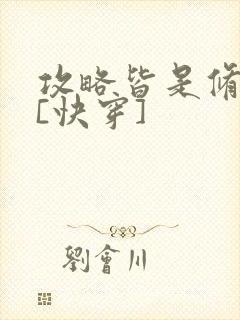 攻略皆是脩
[快穿]
劉會川